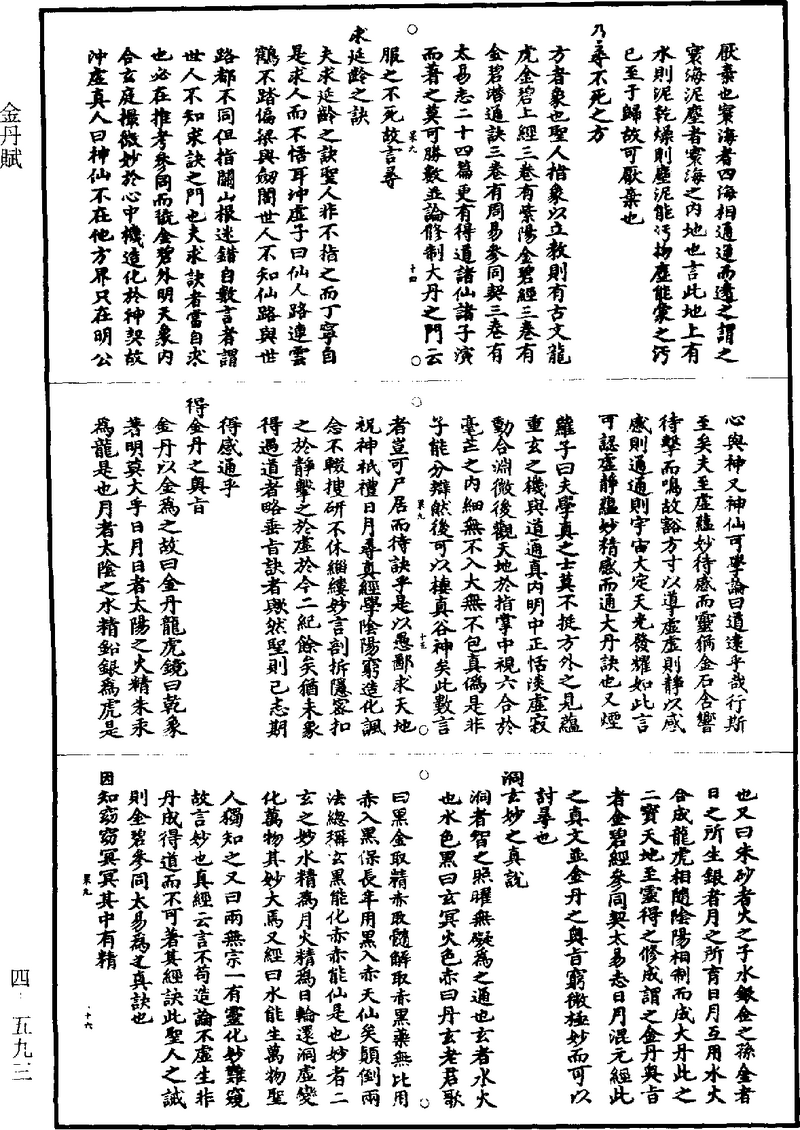 厭棄也寰海者四海相通運而遶之謂之
寰海泥塵者寰海之內地也言此地上有
水則泥乾燥則塵泥能污物塵能蒙之污
已至于歸故可厭棄也
乃尋不死之方
方者象也聖人措象以立教則有古文龍
虎金碧上經三卷有紫陽金碧經三卷有
金碧潛通訣三卷有周易參同契三卷有
太易志二十四篇更有得道諸仙諸子演
而著之莫可勝數並論修制大丹之門云
服之不死故言尋
求延齡之訣
夫求延齡之訣聖人非不指之而丁寧自
是求人而不悟耳沖虛子曰仙人路連雲
鶴不踏偏梁與劒閣世人不知仙路與世
路都不同但指關山根迷錯自數言者謂
世人不知求訣之門也夫求訣者當自求
也必在推考參同而號金碧外明天象內
合玄庭撮微妙於心中機造化於神契故
沖虛真人曰神仙不在他方界只在明公
心與神又神仙可學論曰道遠乎哉行斯
至矣夫至虛蘊妙待感而靈猶金石含響
待擊而鳴故豁方寸以導虛虛則靜以感
感則通通則宇宙大定天光發耀如此言
可認虛靜蘊妙精感而通大丹訣也又煙
蘿子曰夫學真之士莫不挺方外之見蘊
重玄之機與道通真內明中正恬淡虛寂
動合淵微後觀天地於指掌中視六合於
毫芒之內細無不入大無不包真僞是非
子能分辯然後可以棲真谷神矣此數言
者豈可尸居而待訣乎是以愚鄙求天地
祝神祇禮日月尋真經學陰陽窮造化諷
念不輟搜研不休緇縷妙言剖拆隱密扣
之於靜擊之於虛於今二紀餘矣猶未象
得遇道者略垂旨訣者歟然聖則已志期
得感通乎
得金丹之奧旨
金丹以金爲之故曰金丹龍虎鏡曰乾象
著明莫大乎日月日者太陽之火精朱汞
爲龍是也月者太陰之水精鉛銀爲虎是
也又曰朱砂者火之子水銀金之孫金者
日之所生銀者月之所育日月互用水火
合成龍虎相隨陰陽相制而成大丹此之
二寶天地至靈得之修成謂之金丹奧旨
者金碧經參同契太易志日月混元經此
之真文並金丹之奧旨窮微極妙而可以
討尋也
洞玄妙之真說
洞者智之照曜無礙爲之通也玄者水火
也水色黑曰玄冥火色赤曰丹玄老君歌
曰黑金取精赤取髓解取赤黑藥無比用
赤入黑保長年用黑入赤天仙矣顛倒兩
法總稱玄黑能化赤赤能仙是也妙者二
玄之妙水精爲月火精爲日輪還洞虛變
化萬物其妙大焉又經曰水能生萬物聖
人獨知之又曰兩無宗一有靈化妙難窺
故言妙也真經云言不苟造論不虛生非
丹成得道而不可著其經訣此聖人之誡
則金碧參同太易爲之真訣也
因知窈窈冥冥其中有精
金丹賦
四·五九三